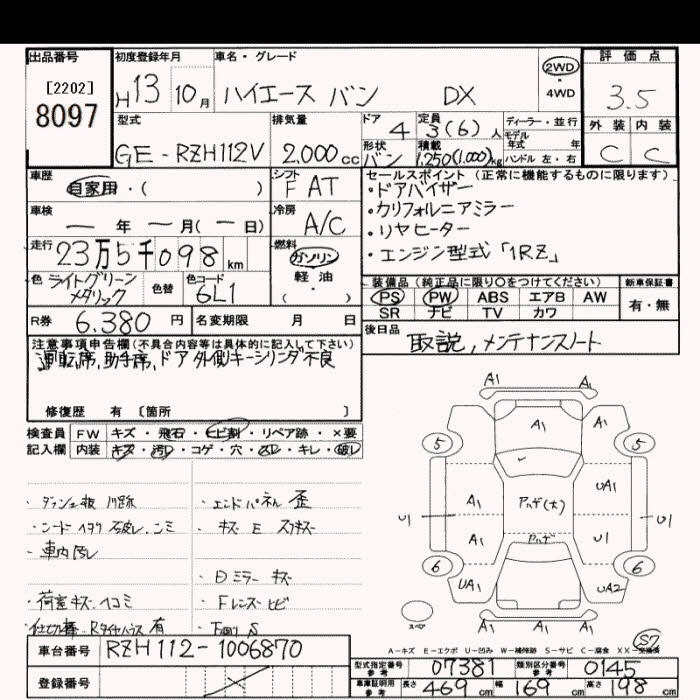 出品番号
[2202]
8097
初度登録年月
H13 10月
車名・グレード
ハイエース バン DX
2WD
・
4WD
評価点
3.5
型式
GE-RZH112V
排気量
2,000cc
ドア
4
形状
バン
定員
3(6)人
積載
1,250(1,000)kg
ディーラー・並行
モデル
年式 年
ハンドル 左・右
外装 内装
C C
車歴
自家用・( )
シフト
F AT
車検
ー 年 ー 月(ー日)
冷房
A/C
走行
23万5千098 km
燃料
ガソリン
軽・油
( ・ )
色
ライトグリーン
メタリック
色替
色コード
6L1
R券 6,380 円
名変期限 月 日
セールスポイント(正常に機能するものに限ります)
・ドアバイザー
・カリフォルニアミラー
・リヤヒーター
・エンジン型式「1RZ」
装備品(純正品に限り○をつけてください)
新車保証書
PS PW ABS エアB AW
SR ナビ TV カワ
有・無
後日品
取説,メンテナンスノート
注意事項申告欄(不具合内容等は具体的に記入して下さい)
運転席,助手席,ドア外側キーシリンダ不良
修復歴 有 〔箇所 〕
検査員
記入欄
FW キズ・飛石・ヒビ割・リペア跡・×要
内装 キズ・汚レ・コゲ・穴・スレ・キレ・破レ
・エンドパネル 歪
・車内汚レ
・Dミラー キズ
・荷室キズ・凹コミ
・Fレンズ ヒビ
・下廻り S
車台番号 RZH112-1006870
登録番号
A1
A1
A1
A1
5
5
A1
アハゲ(大)
UA1
U1
A1
アハゲ
U1
U1
6
6
UA1
UA2
A1 A1 A1
スペア
S7
A-キズ E-エクボ U-凹み W-補修跡 S-サビ C-腐食 XX-交換済
型式指定番号
参考
07381
類別区分番号
参考
0145
車庫証明用
参考
長さ 469 cm
幅 169 cm
高さ 198 cm